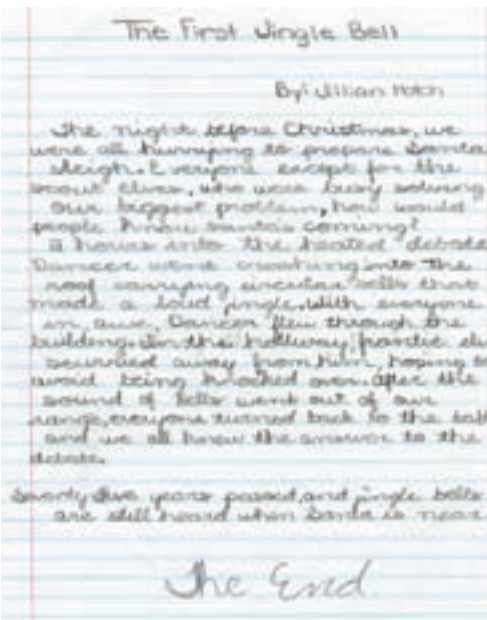 The First Jingle Bell
By: Jillian Hotch
The night before Christmas, we
were all hurrying to prepare Santa
sleigh. Everyone except for the
scout elves, who were busy solving
our biggest problem, how would
people know Santa's coming?
hours into the heated debate
Dancer went crashing into the
roof carrying circular bells that
made a loud jingle. With everyone
in awe, Dancer flew through the
building. In the hallway, frantic el
scurried away from him, hoping to
avoid being knocked over. After the
sound of bells went out of our
range, everyone turned back to the
and we all knew the answer to the
debate.
Seventy five years passed, and jingle bells
are still heard when Santa is near
The End